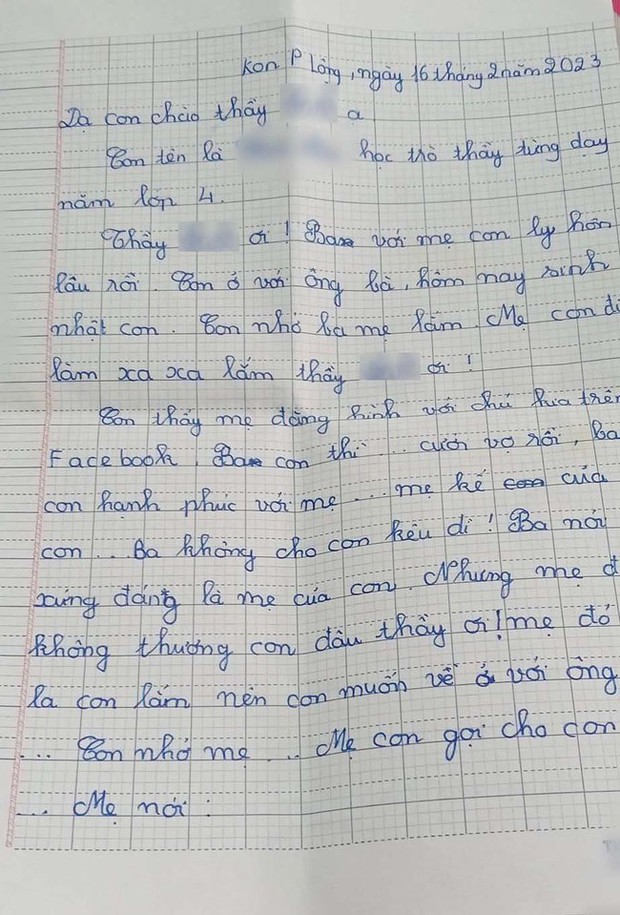 Kon Plông, ngày 16 tháng 2 năm 2023
Dạ con chào thầy ạ
Con tên là học trò thầy từng dạy
năm lớp 4.
Thầy ơi! Ba với mẹ con ly hôn
lâu rồi. Con ở với ông bà, hôm nay sinh
nhật con. Con nhớ ba mẹ lắm. Mẹ con đi
làm xa xa lắm thầy ơi!
Con thấy mẹ đăng hình với chú kia trên
Facebook, Ba con thì ... cưới vợ rồi, Ba
con hạnh phúc với mẹ ... mẹ kế của
con ... Ba không cho con kêu dì! Ba nói
xứng đáng là mẹ của con. Nhưng mẹ đ
không thương con đâu thầy ơi! mẹ đó
la con lắm nên con muốn về ở với ông
... Con nhớ mẹ ... Mẹ con gọi cho con
... Mẹ nói: